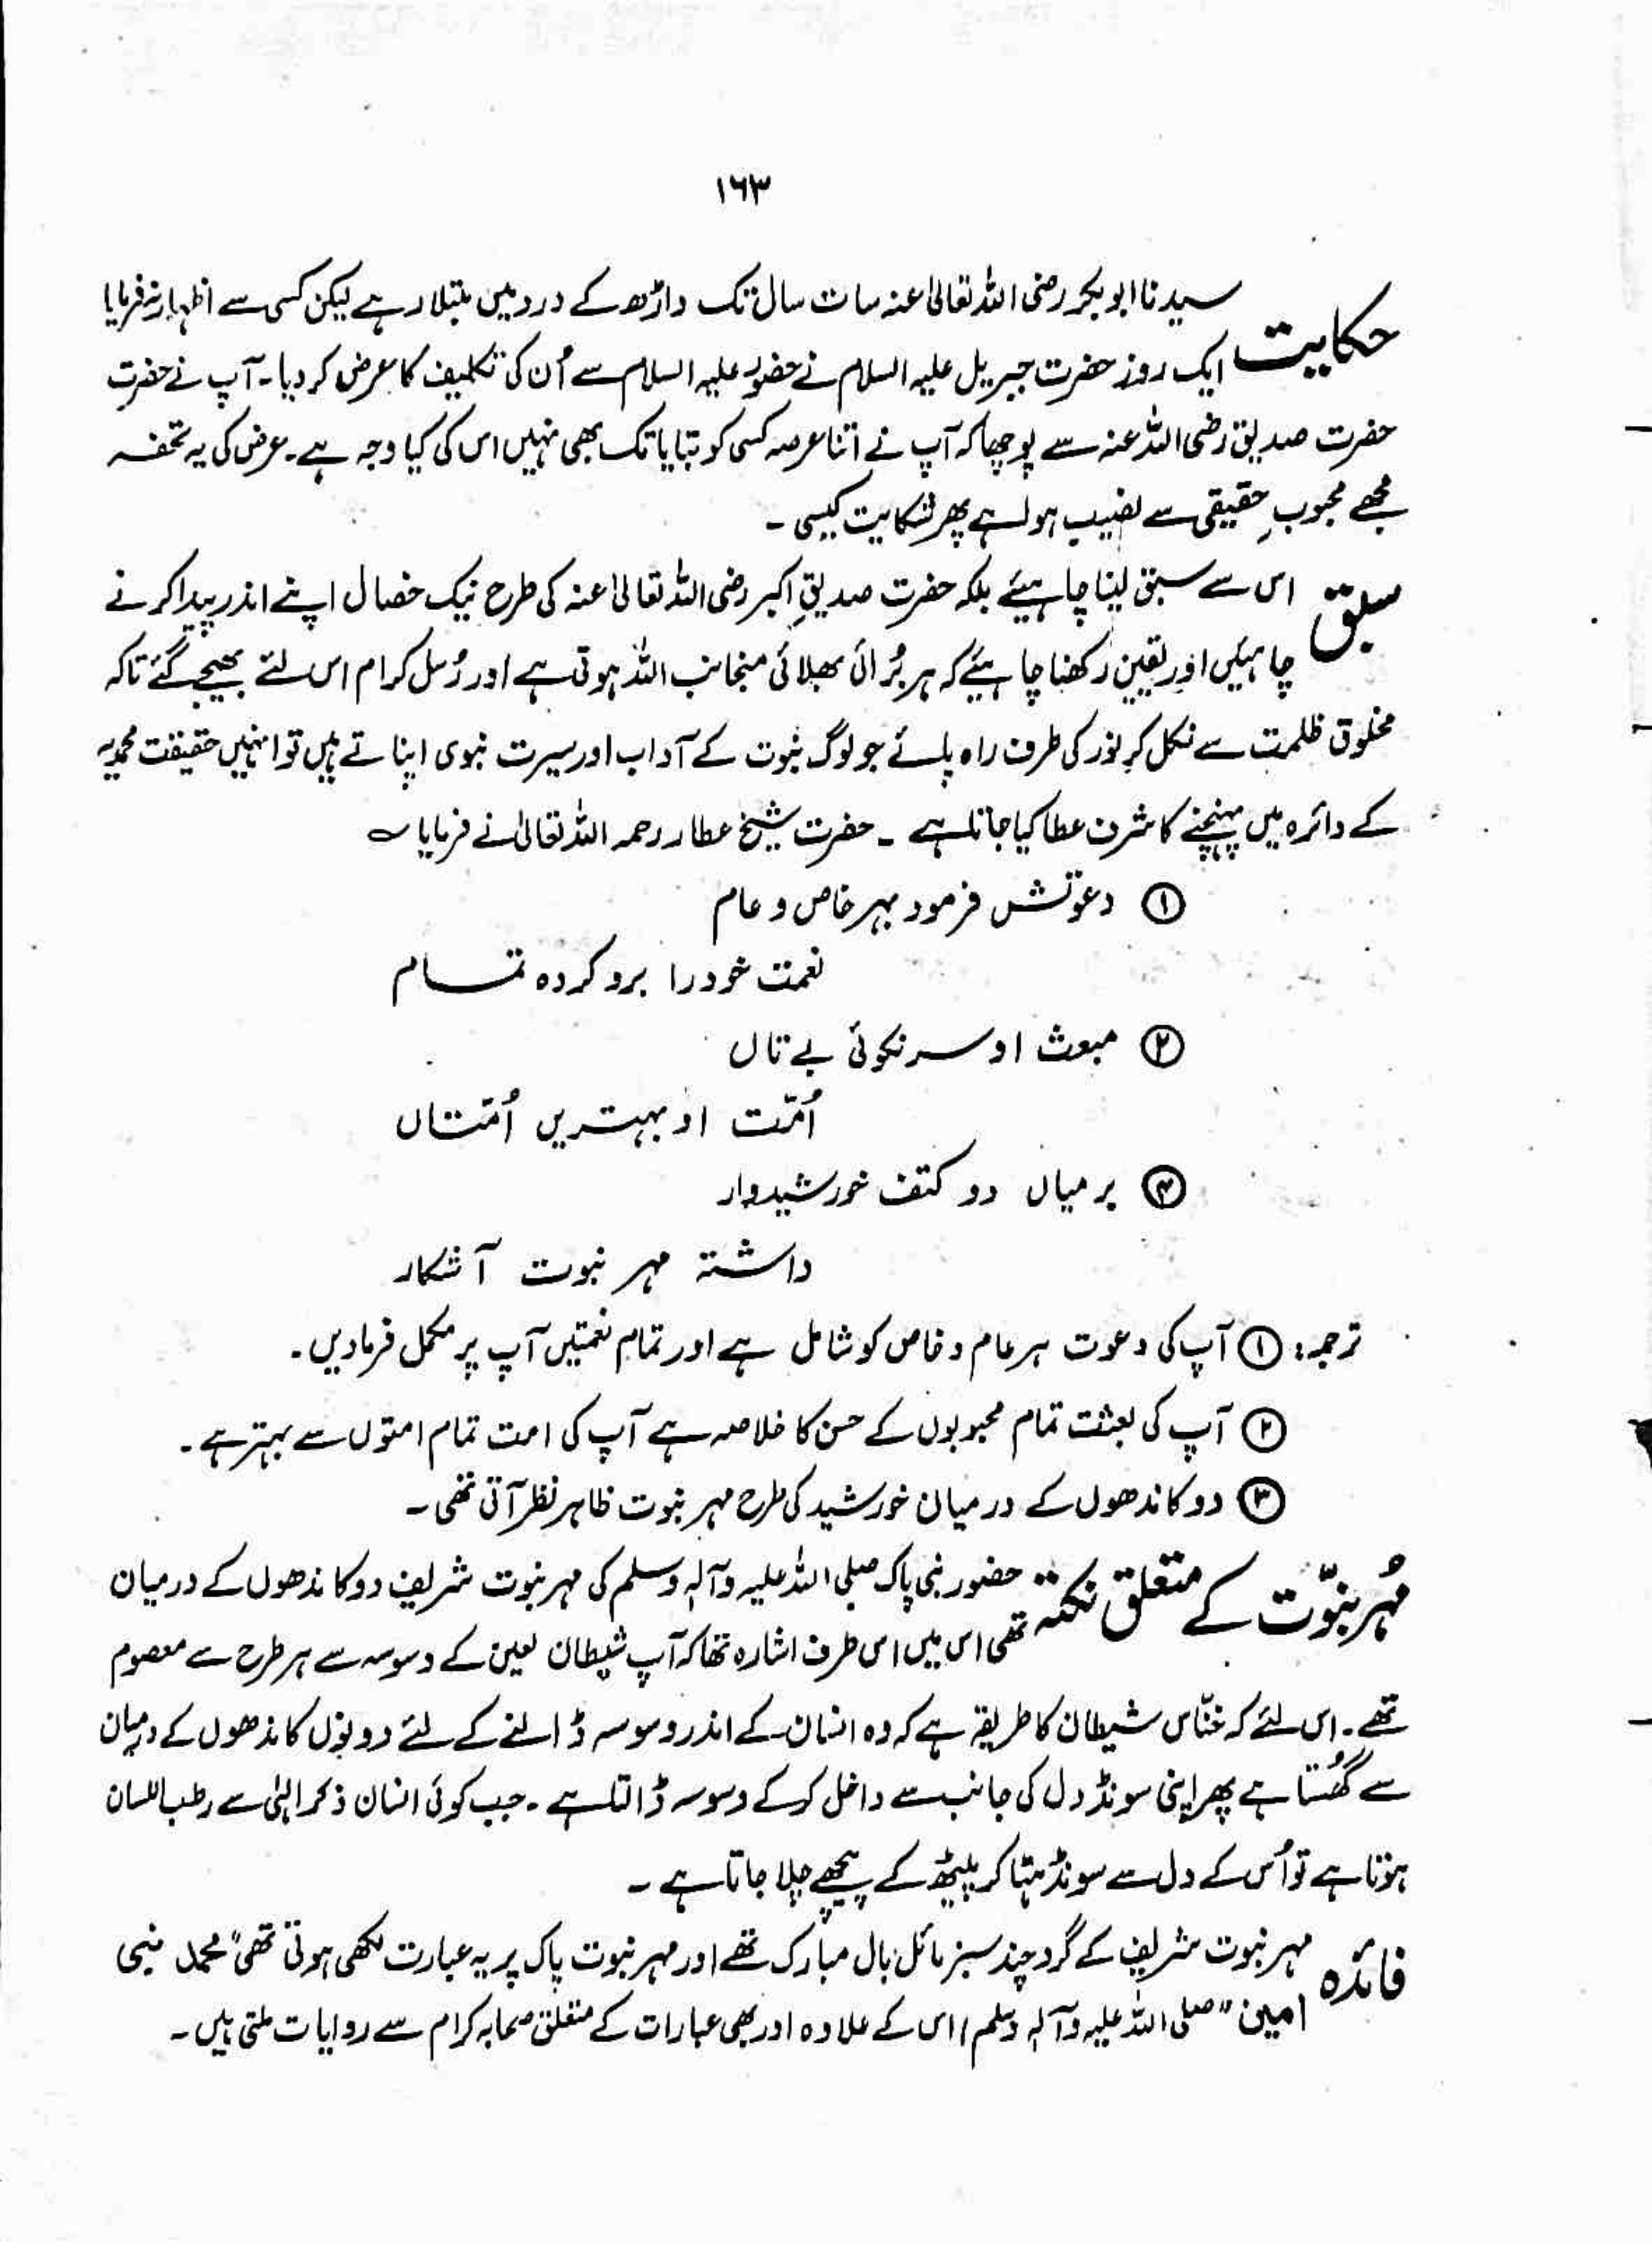 ۱۶۳
حکایت سیدنا ابوبکر رضی اللہ تعالیٰ عنہ سات سال تک داڑھ کے درد میں مبتلا رہے لیکن کسی سے اظہار نہ فرمایا
ایک روز حضرت جبریل علیہ السلام نے حضور علیہ السلام سے اُن کی تکلیف کا عرض کر دیا۔ آپ نے حضرت
حضرت صدیق رضی اللہ عنہ سے پوچھا کہ آپ نے اتنا عرصہ کسی کو بتایا تک بھی نہیں اس کی کیا وجہ ہے۔ عرض کی یہ تحفہ
مجھے محبوبِ حقیقی سے نصیب ہوا ہے پھر شکایت کیسی۔
سبق اس سے سبق لینا چاہیئے بلکہ حضرت صدیقِ اکبر رضی اللہ تعالیٰ عنہ کی طرح نیک خصال اپنے اندر پیدا کرنے
چاہئیں اور یقین رکھنا چاہیئے کہ ہر بُرائی بھلائی منجانب اللہ ہوتی ہے اور رُسل کرام اس لئے بھیجے گئے تاکہ
مخلوق ظلمت سے نکل کر نور کی طرف راہ پائے جو لوگ نبوت کے آداب اور سیرت نبوی اپناتے ہیں تو انہیں حقیقت محمدیہ
کے دائرہ میں پہنچنے کا شرف عطا کیا جاتا ہے ۔ حضرت شیخ عطار رحمہ اللہ تعالیٰ نے فرمایا ؎
① دعوتش فرمود بہر خاص و عام
نعمت خود را برو کردہ تمام
② مبعث او سر نکوئی بے تال
اُمّت او بہترین اُمّتاں
③ بر میاں دو کتف خورشیدوار
داشتہ مہر نبوت آشکار
ترجمہ: ① آپ کی دعوت ہر عام و خاص کو شامل ہے اور تمام نعمتیں آپ پر مکمل فرمادیں۔
② آپ کی بعثت تمام محبوبوں کے حسن کا خلاصہ ہے آپ کی امت تمام امتوں سے بہتر ہے۔
③ دو کاندھوں کے درمیان خورشید کی طرح مہر نبوت ظاہر نظر آتی تھی۔
مُہرِ نبوّت کے متعلق نکتہ حضور نبی پاک صلی اللہ علیہ وآلہٖ وسلم کی مہر نبوت شریف دو کاندھوں کے درمیان
تھی اس میں اس طرف اشارہ تھا کہ آپ شیطان لعین کے وسوسہ سے ہر طرح سے معصوم
تھے۔ اس لئے کہ خنّاس شیطان کا طریقہ ہے کہ وہ انسان کے اندر وسوسہ ڈالنے کے لئے دونوں کاندھوں کے درمیان
سے گھُستا ہے پھر اپنی سونڈ دل کی جانب سے داخل کرکے وسوسہ ڈالتا ہے۔ جب کوئی انسان ذکر الہٰی سے رطب اللسان
ہوتا ہے تو اُس کے دل سے سونڈ ہٹا کر پیٹھ کے پیچھے چلا جاتا ہے ۔
فائدہ مہر نبوت شریف کے گرد چند سبز مائل بال مبارک تھے اور مہر نبوت پاک پر یہ عبارت لکھی ہوتی تھی "محمد نبی
امین" صلی اللہ علیہ وآلہٖ وسلم) اس کے علاوہ اور بھی عبارات کے متعلق صحابہ کرام سے روایات ملتی ہیں۔